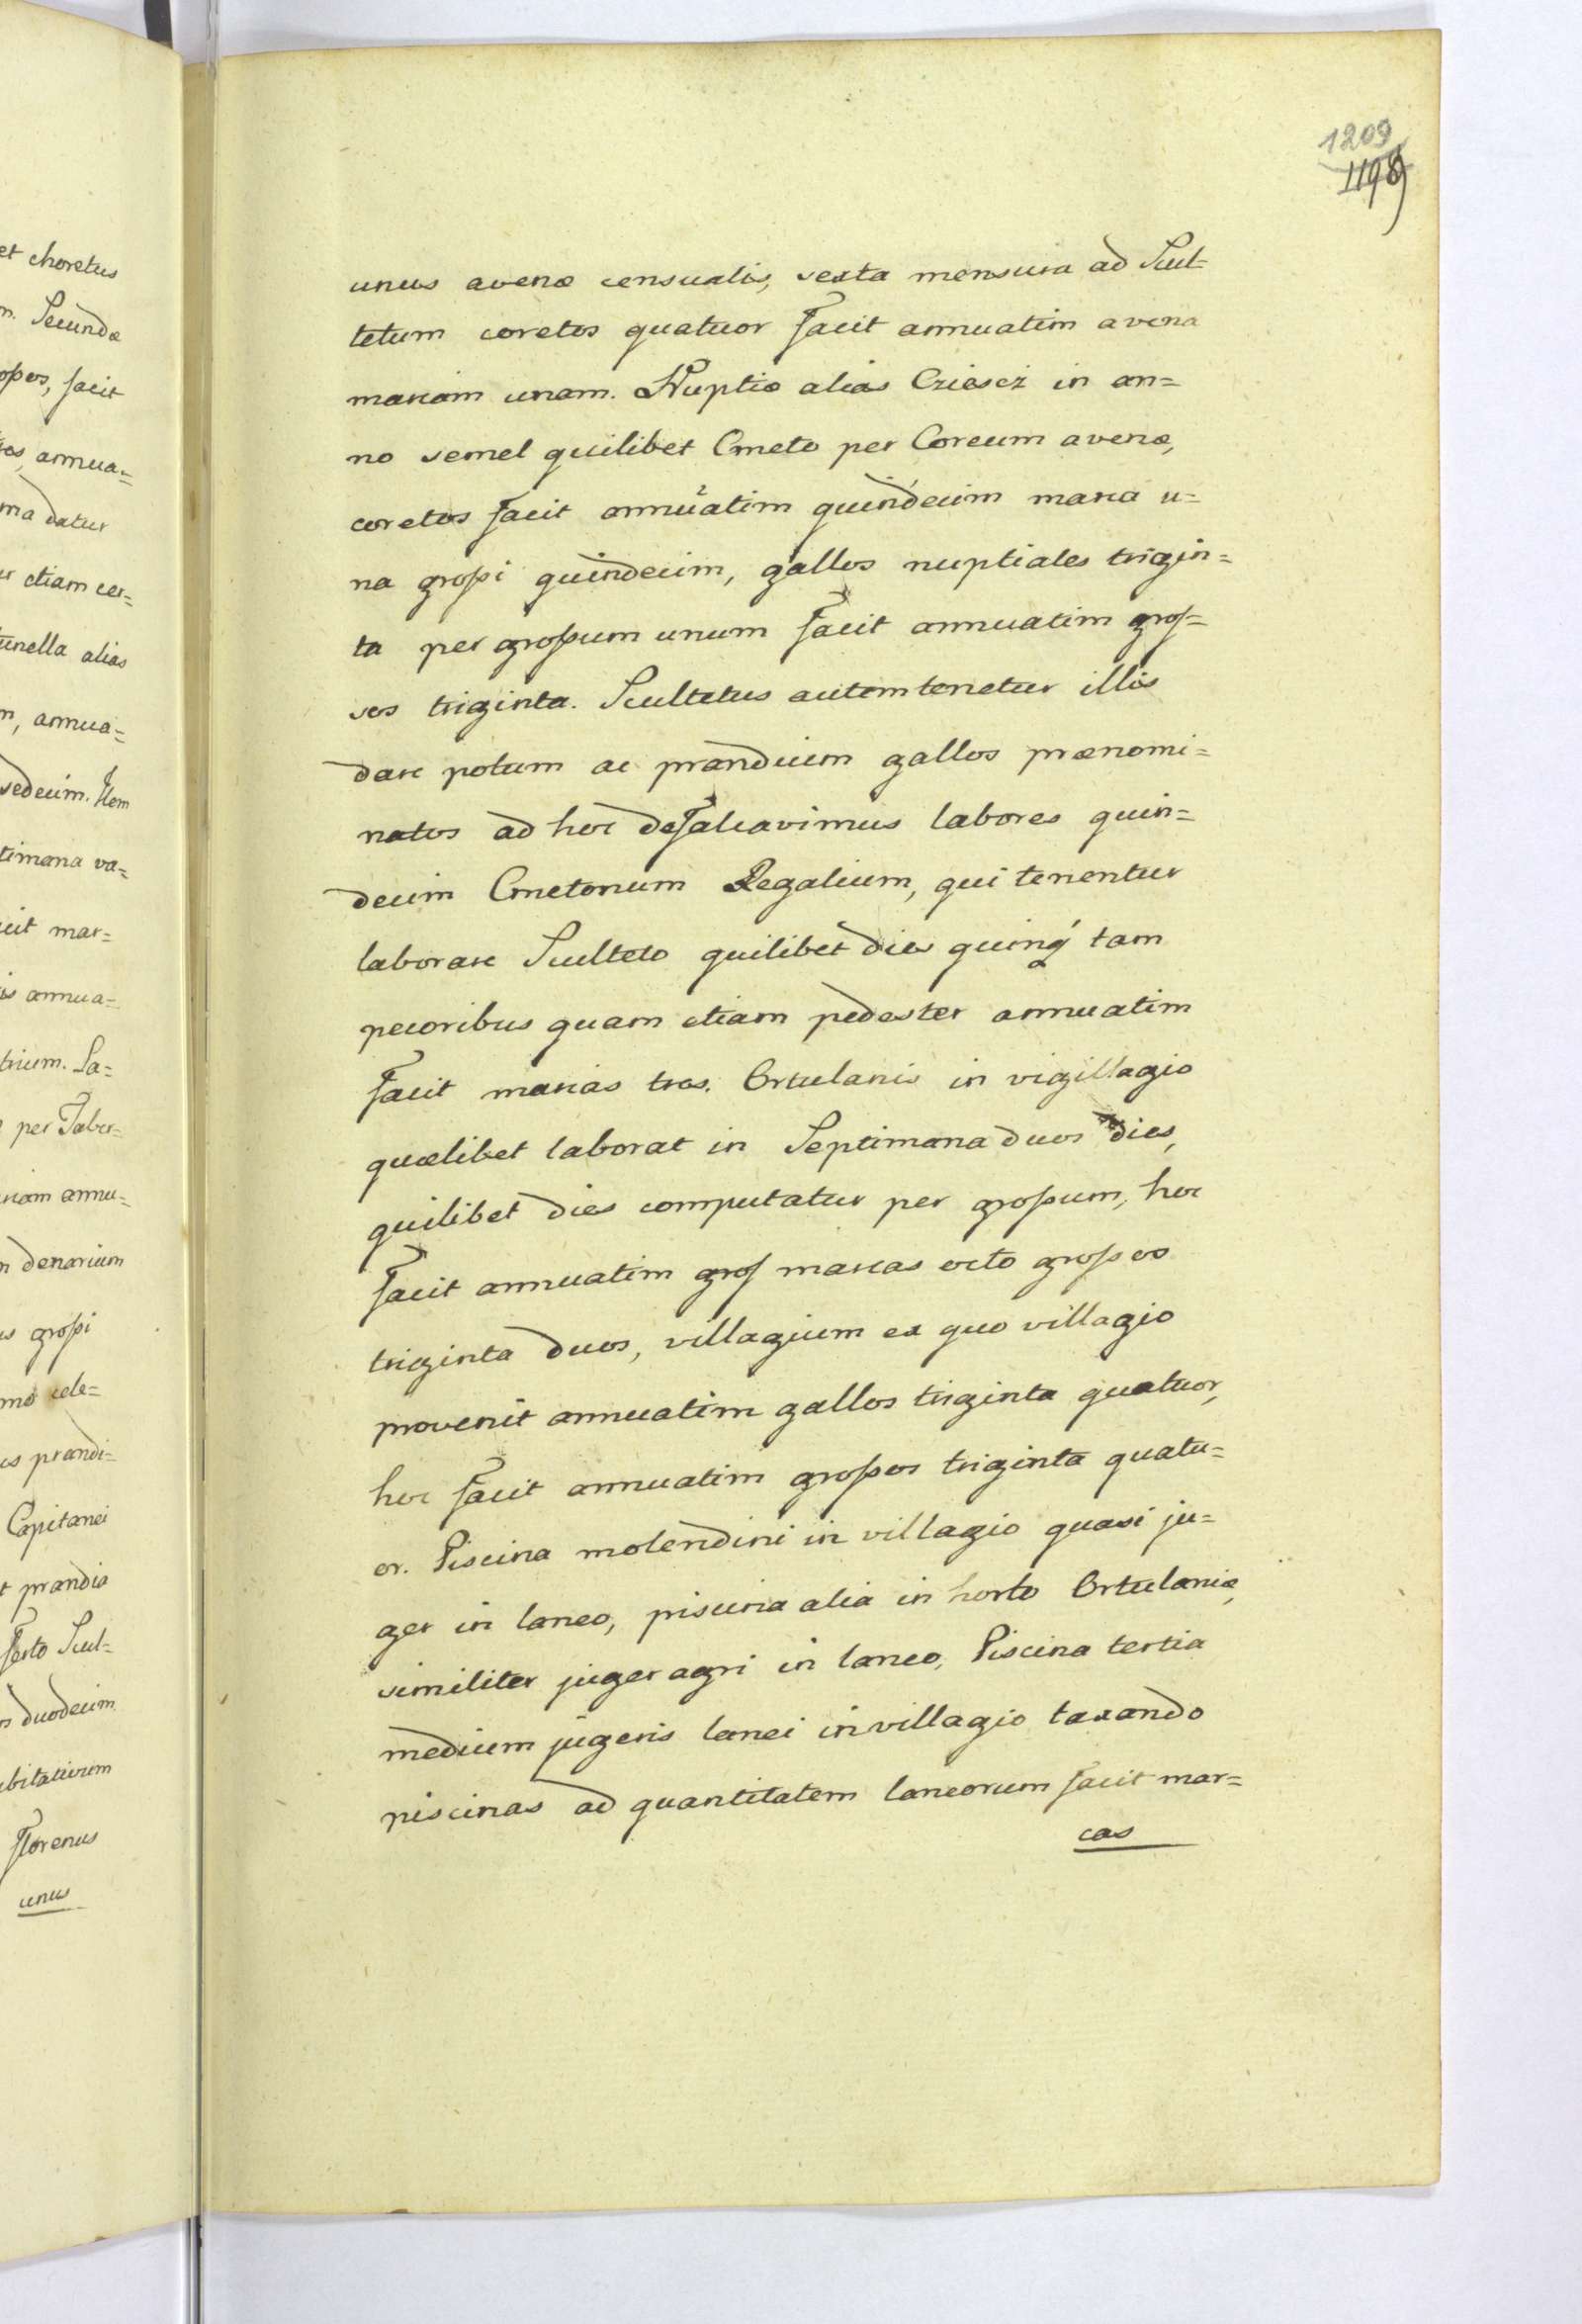 et choretus
n. Secundæ
opos, facit
annua=
ma datur
etiam cer=
unella alias
m, annua=
sedecim. Item
timana va=
cit mar=
is annua=
trium. La=
per Taber=
cam annu=
n denarium
us grossi
mo cele=
us prandi=
Capitanei
t prandia
ferto Scul=
s duodecim
bitativum
Florenus
unus
1209
1198
unus avenæ censualis, sexta mensura ad Scul=
tetum coretos quatuor facit annuatim avena
marcam unam. Nuptiæ alias Cziescz in an=
no semel quilibet Cmeto per Coreum avenæ,
coretos facit annuatim quindecim marca u=
na grossi quindecim, gallos nuptiales trigin=
ta per grossum unum facit annuatim gros=
sos triginta. Scultetus autem tenetur illis
dare potum ac prandium gallos prænomi=
natos ad hoc defalcavimus labores quin=
decim Cmetonum Regalium, qui tenentur
laborare Sculteto quilibet dies quinq́ tam
pecoribus quam etiam pedester annuatim
facit marcas tres. Ortulanis in vigillagio
quælibet laborat in Septimana duos dies,
quilibet dies computatur per grossum, hoc
facit annuatim gros marcas octo grossos
triginta duos, villagium ex quo villagio
provenit annuatim gallos triginta quatuor,
hoc facit annuatim grossos triginta quatu=
or. Piscina molendini in villagio quasi ju=
ger in laneo, piscina alia in horto Ortulaniæ,
similiter juger agri in laneo, Piscina tertia
medium jugeris lanei in villagio taxando
piscinas ad quantitatem laneorum facit mar=
cas